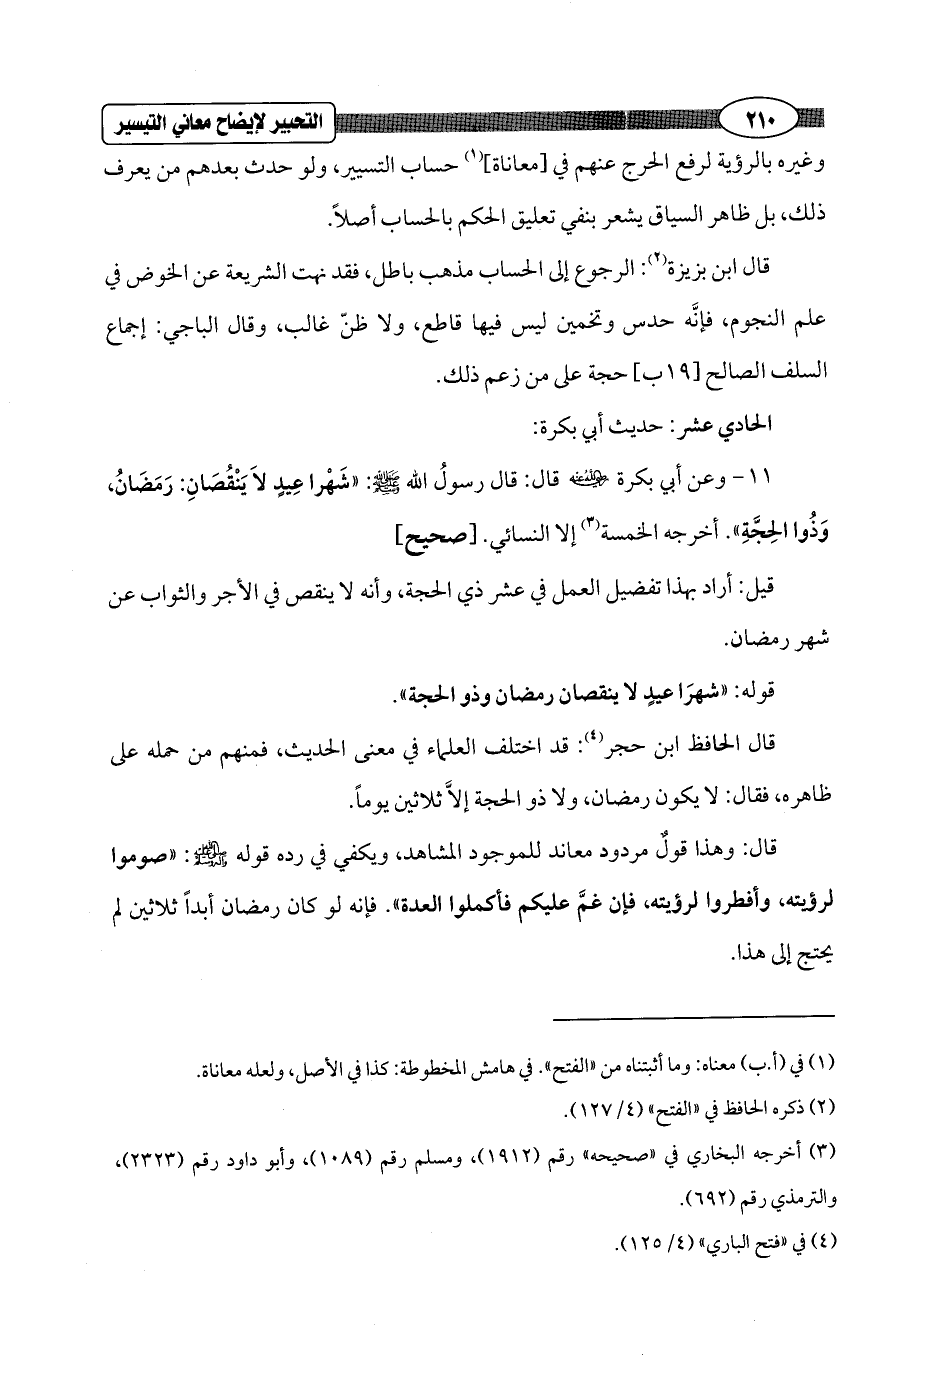 ٢١٠ التحبير لإيضاح معاني التيسير
وغيره بالرؤية لرفع الحرج عنهم في [معاناة](١) حساب التسيير، ولو حدث بعدهم من يعرف
ذلك، بل ظاهر السياق يشعر بنفي تعليق الحكم بالحساب أصلاً.
قال ابن بزيزة(٢): الرجوع إلى الحساب مذهب باطل، فقد نهت الشريعة عن الخوض في
علم النجوم، فإنَّه حدس وتخمين ليس فيها قاطع، ولا ظنّ غالب، وقال الباجي: إجماع
السلف الصالح [١٩ب] حجة على من زعم ذلك.
الحادي عشر: حديث أبي بكرة:
١١- وعن أبي بكرة رضي الله عنه قال: قال رسولُ الله ﷺ: «شَهْرا عِيدٍ لاَ يَنْقُصَانِ: رَمَضَانُ،
وَذُوا الحِجَّةِ». أخرجه الخمسة(٣) إلا النسائي. [صحيح]
قيل: أراد بهذا تفضيل العمل في عشر ذي الحجة، وأنه لا ينقص في الأجر والثواب عن
شهر رمضان.
قوله: «شهرَا عيدٍ لا ينقصان رمضان وذو الحجة».
قال الحافظ ابن حجر(٤): قد اختلف العلماء في معنى الحديث، فمنهم من حمله على
ظاهره، فقال: لا يكون رمضان، ولا ذو الحجة إلاَّ ثلاثين يوماً.
قال: وهذا قولٌ مردود معاند للموجود المشاهد، ويكفي في رده قوله ﷺ: «صوموا
لرؤيته، وأفطروا لرؤيته، فإن غمَّ عليكم فأكملوا العدة». فإنه لو كان رمضان أبداً ثلاثين لم
يحتج إلى هذا.
(١) في (أ.ب) معناه: وما أثبتناه من «الفتح». في هامش المخطوطة: كذا في الأصل، ولعله معاناة.
(٢) ذكره الحافظ في «الفتح» (٤/ ١٢٧).
(٣) أخرجه البخاري في «صحيحه» رقم (١٩١٢)، ومسلم رقم (١٠٨٩)، وأبو داود رقم (٢٣٢٣)،
والترمذي رقم (٦٩٢).
(٤) في «فتح الباري» (٤/ ١٢٥).